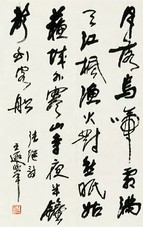 月落烏啼霜滿
天江楓漁火對愁眠姑
蘇城外寒山寺夜半鐘
聲到客船
張繼詩